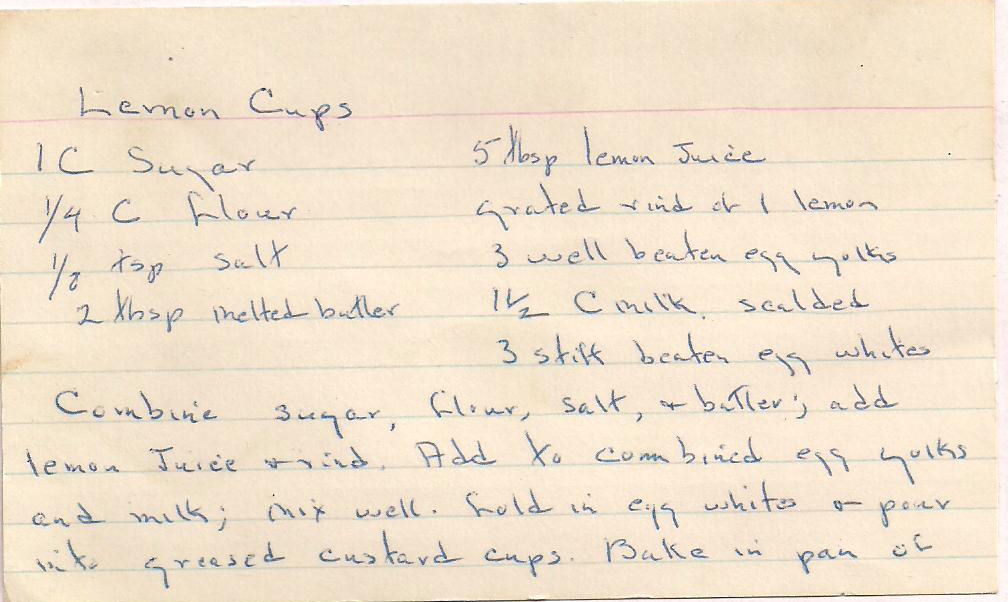 Lemon Cups
1 C Sugar
1/4 C flour
1/8 tsp salt
2 tbsp melted butter
5 tbsp lemon Juice
grated rind of 1 lemon
3 well beaten egg yolks
1 1/2 C milk, scalded
3 stiff beaten egg whites
Combine sugar, flour, salt, + butter; add
lemon Juice + rind. Add to combined egg yolks
and milk; mix well. Fold in egg whites + pour
into greased custard cups. Bake in pan of